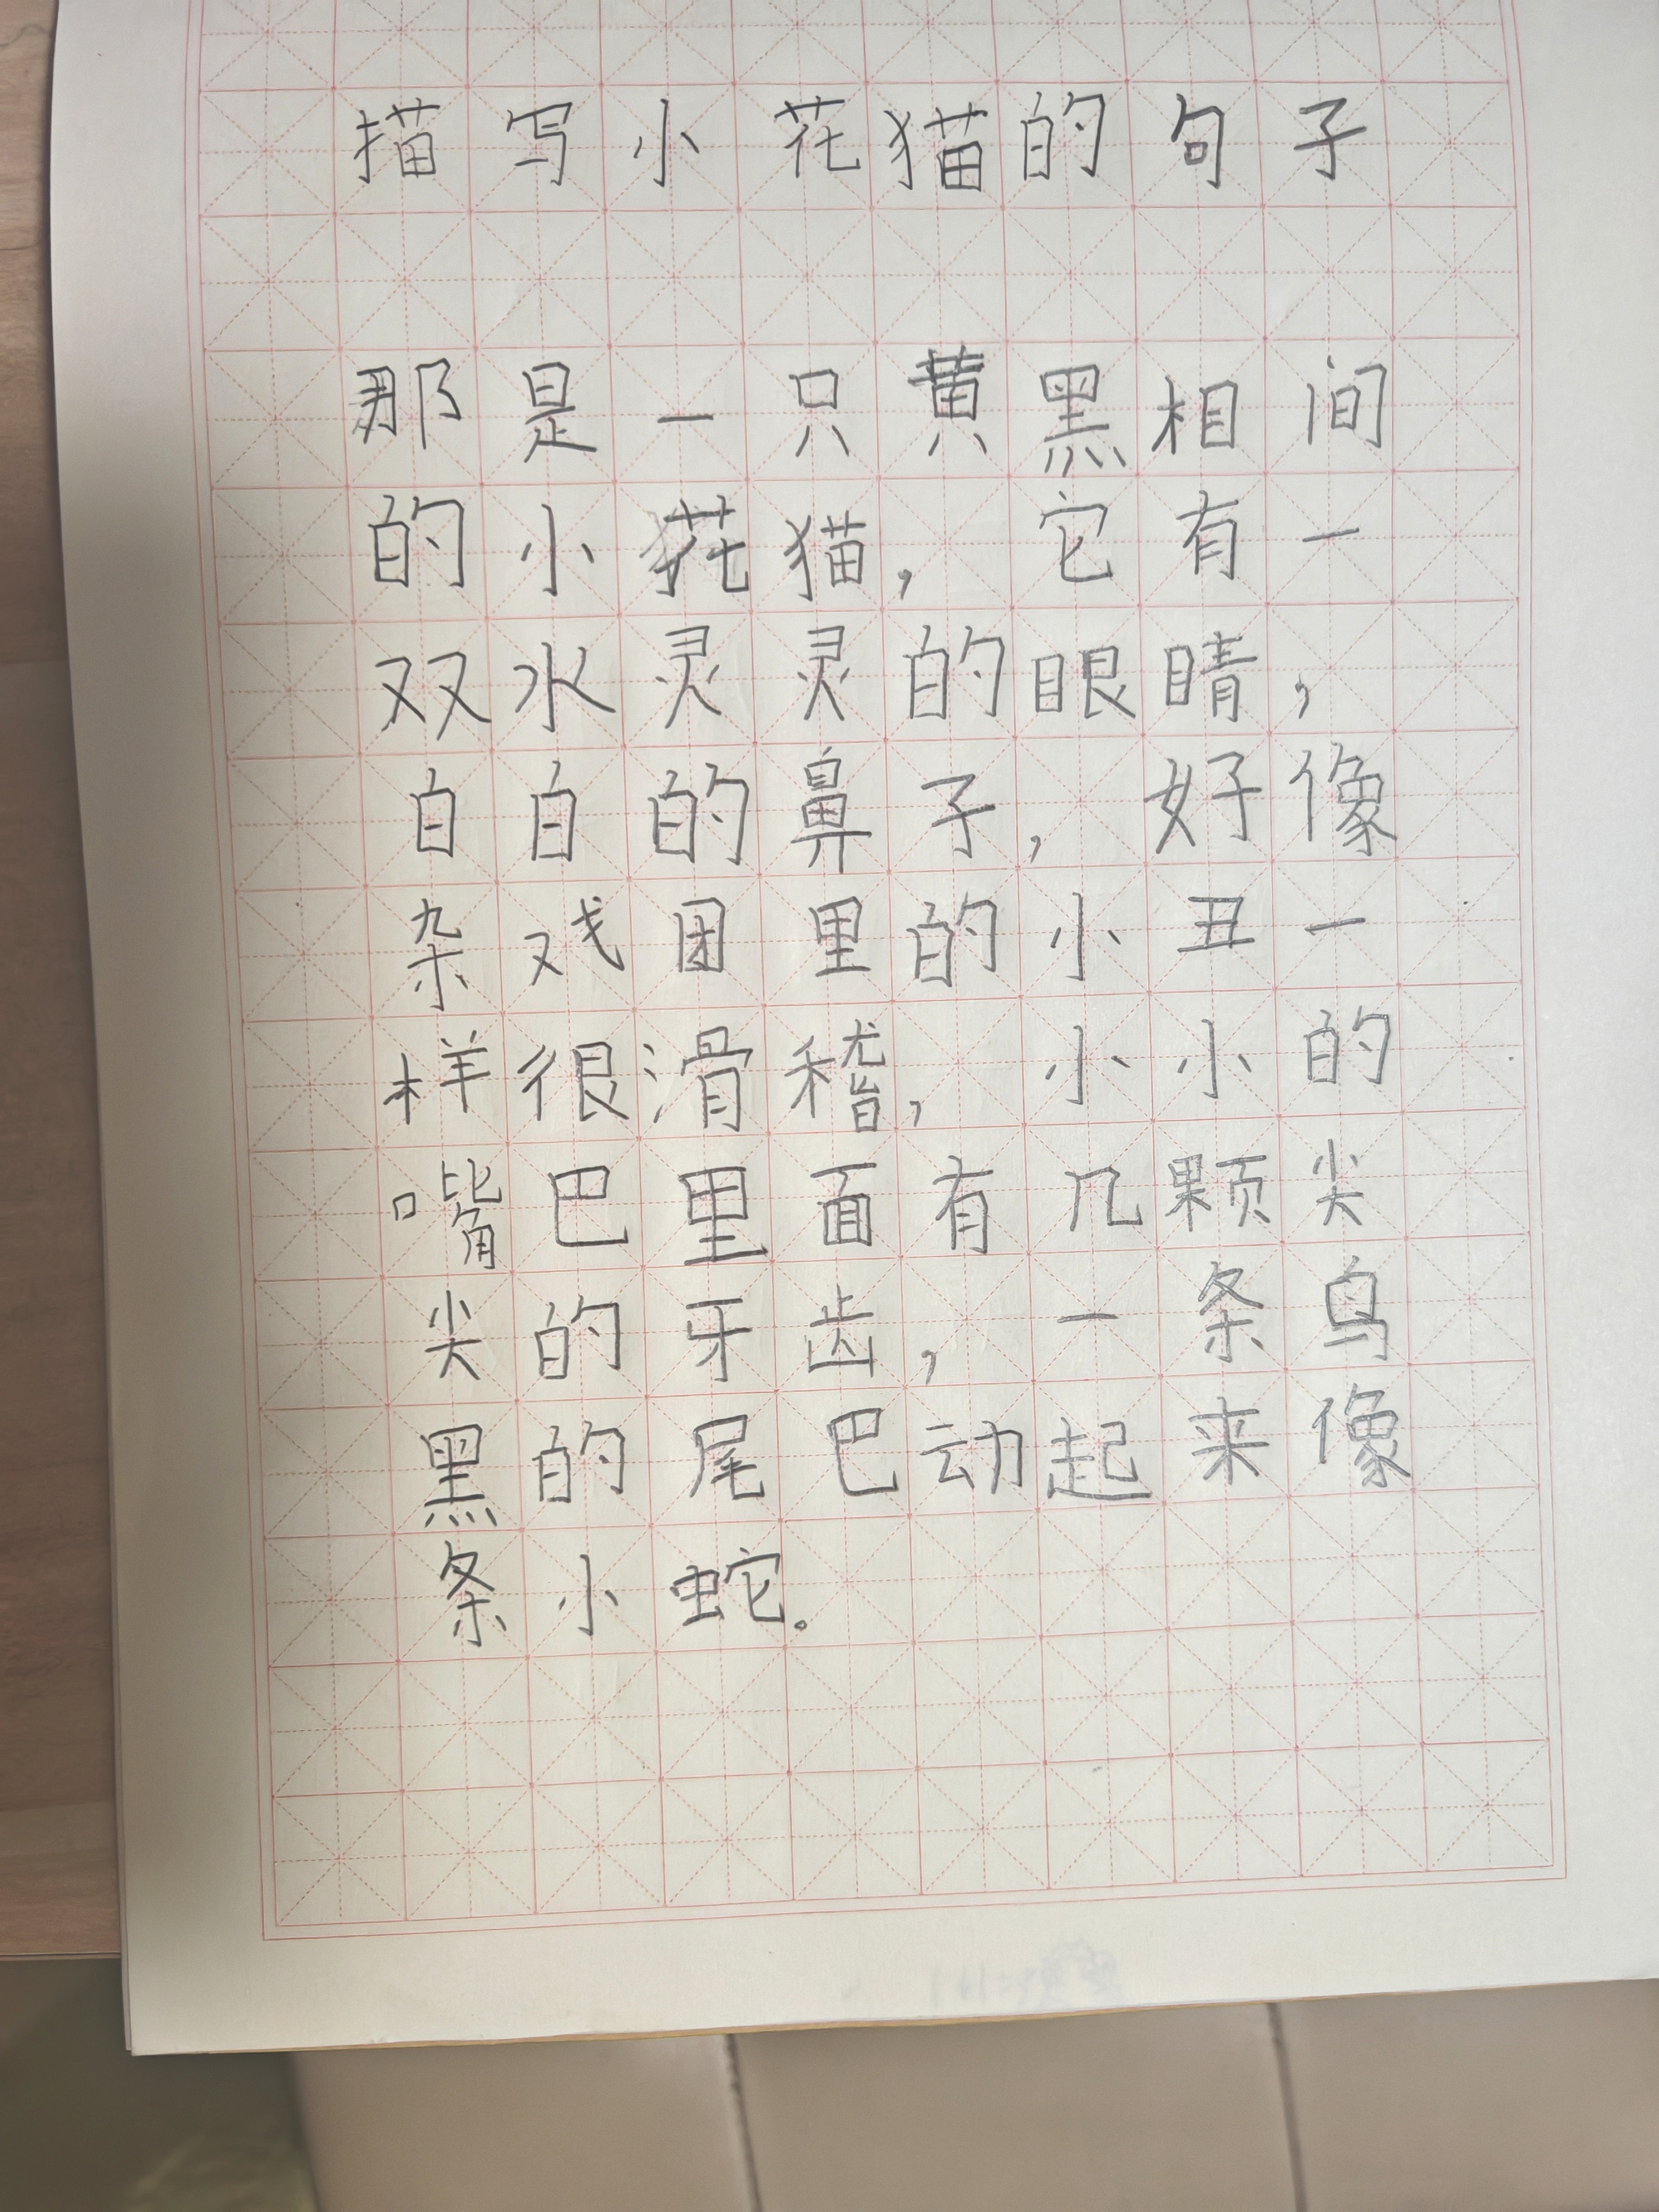 描写小花猫的句子
那是一只黄黑相间
的小花猫，它有一
双水灵灵的眼睛，
白白的鼻子，好像
杂戏团里的小丑一
样很滑稽，小小的
嘴巴里面有几颗尖
尖的牙齿，一条乌
黑的尾巴动起来像
条小蛇。